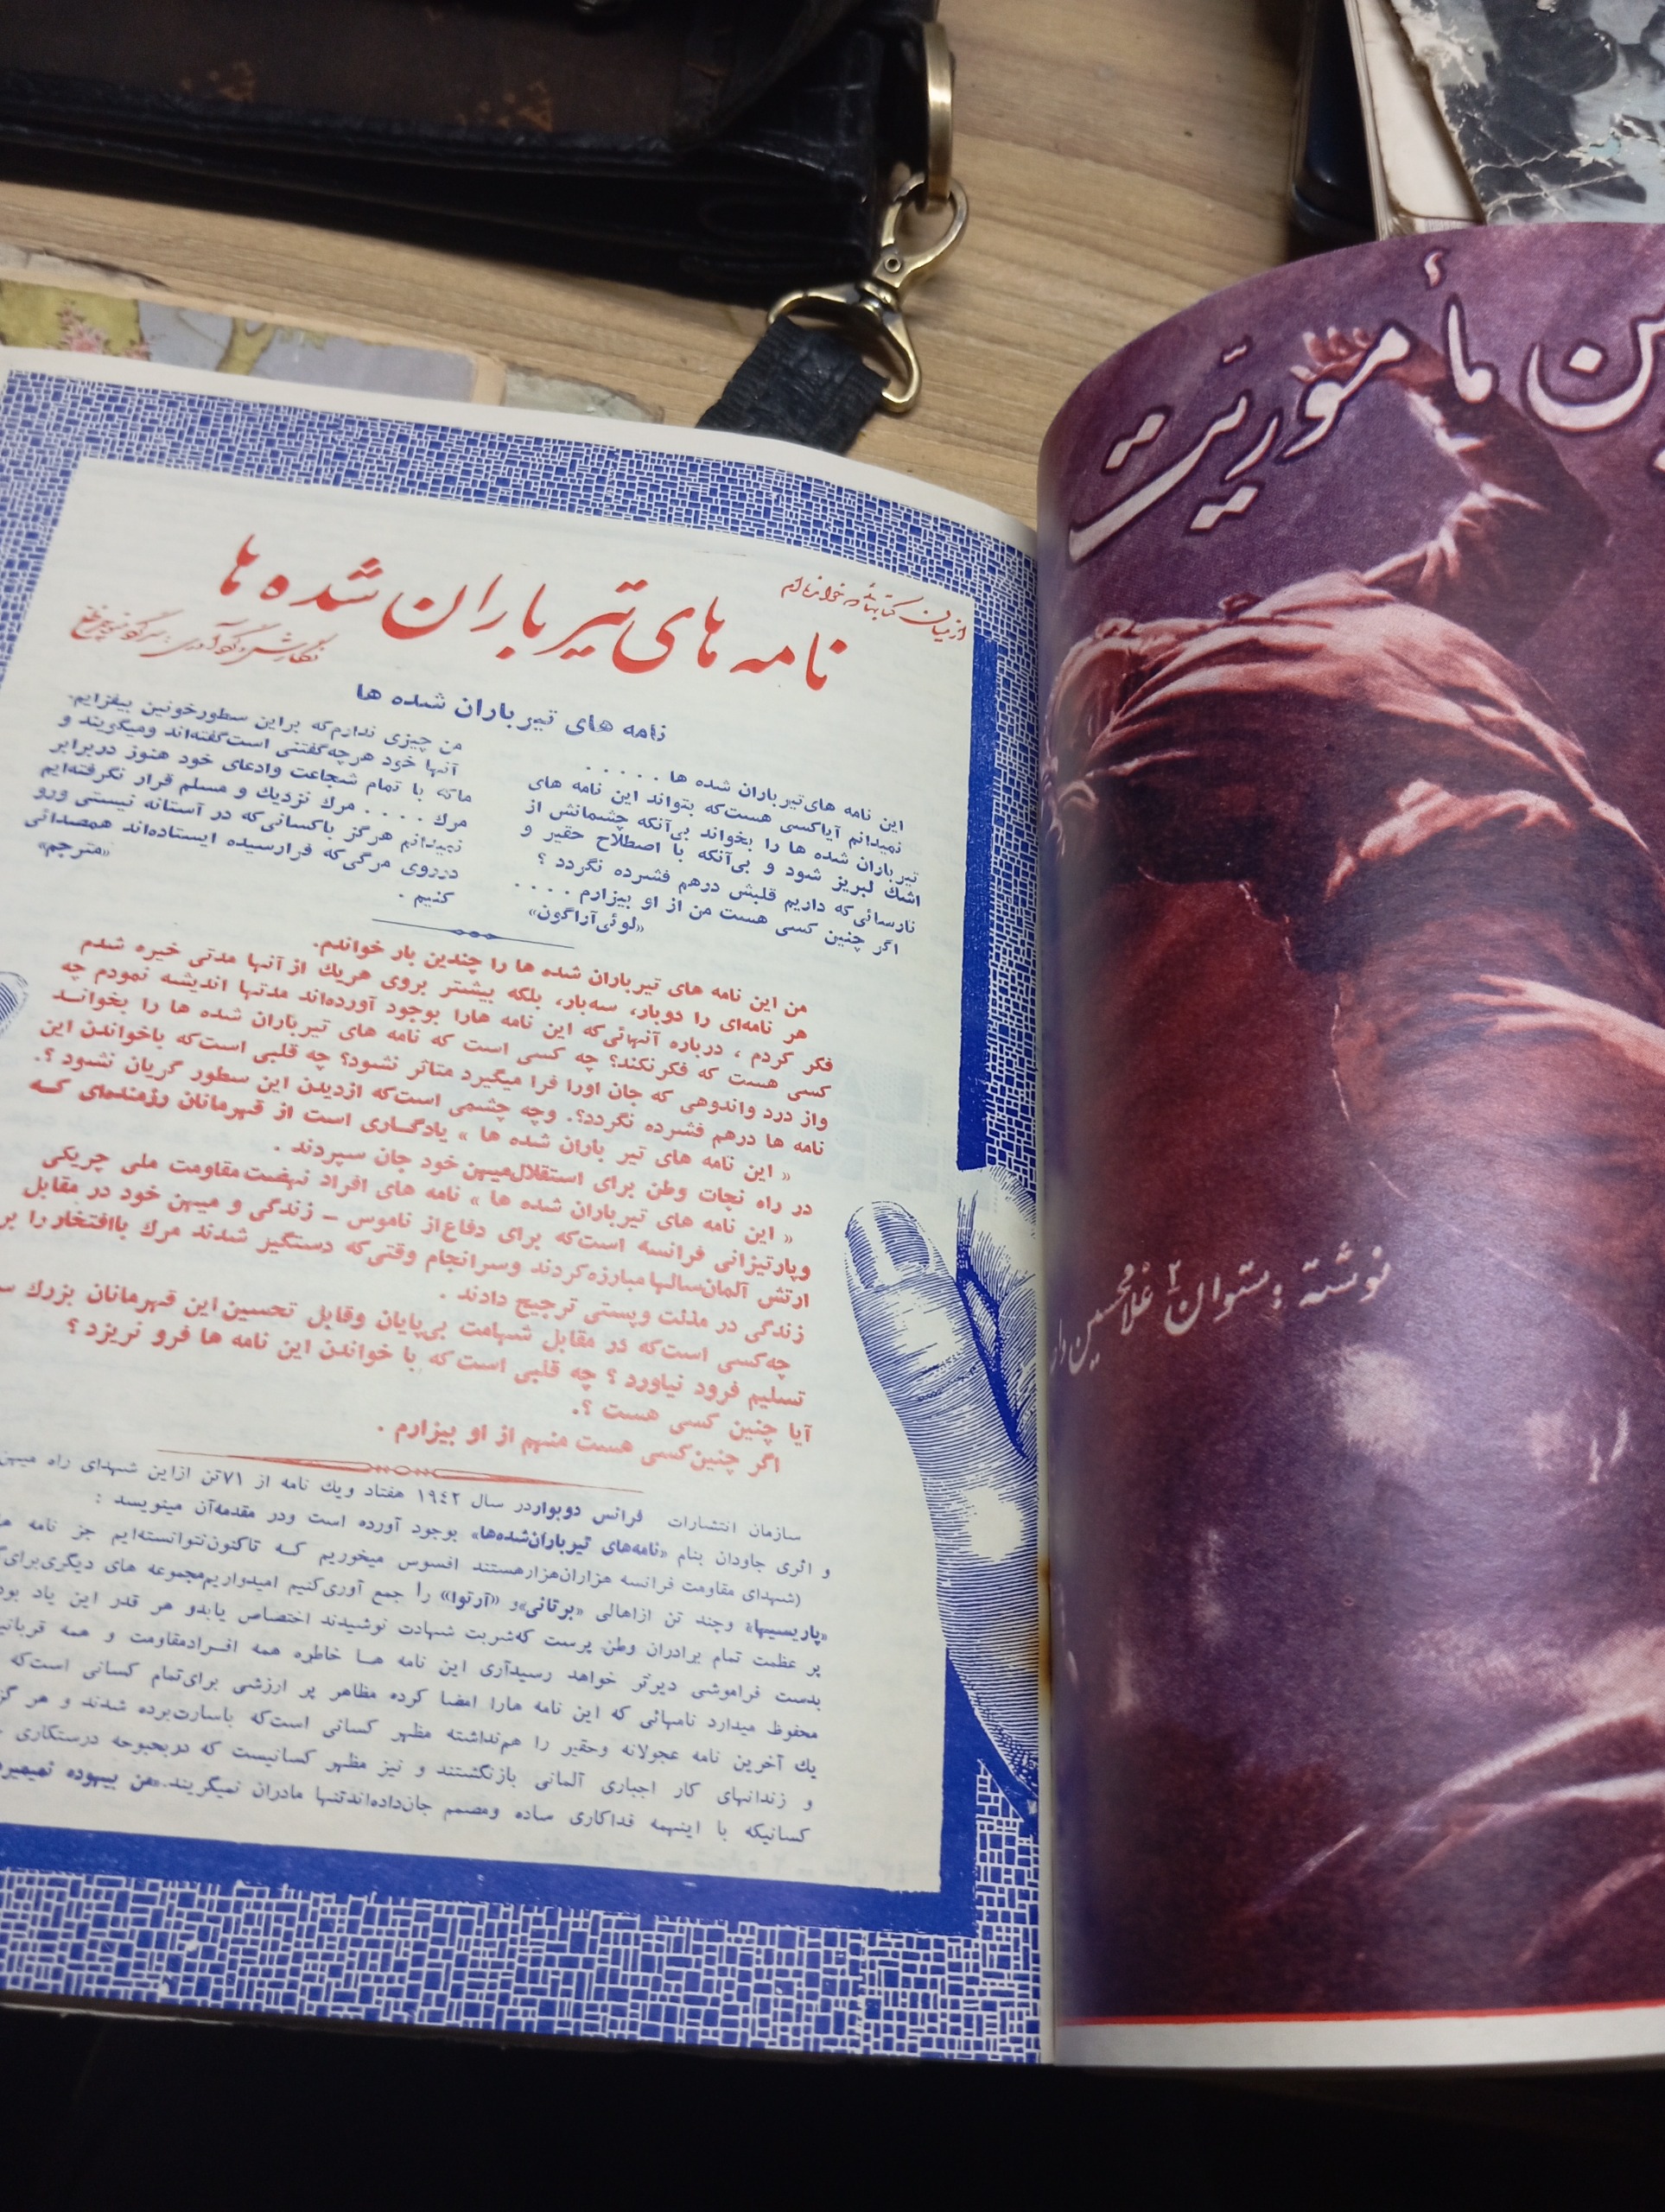 ین مأموریّت
نوشته : ستوان ۲ غلامحسین
از میان کتابهائیکه خوانده‌ام
نامه های تیر باران شده ها
نگارش و گردآوری : سرگرد
نامه های تیر باران شده ها
این نامه های تیر باران شده ها . . . . .
نمیدانم آیا کسی هست که بتواند این نامه های
تیر باران شده ها را بخواند بی‌آنکه چشمانش از
اشك لبریز شود و بی‌آنکه با اصطلاح حقیر و
نارسائی که داریم قلبش درهم فشرده نگردد ؟
اگر چنین کسی هست من از او بیزارم . . . .
«لوئی آراگون»
من چیزی ندارم که براین سطور خونین بیفزایم.
آنها خود هرچه گفتنی است گفته‌اند ومیگویند و
ما که با تمام شجاعت وادعای خود هنوز دربرابر
مرك . . . . مرك نزدیك و مسلم قرار نگرفته‌ایم
نمیدانم هرگز با کسانی که در آستانه نیستی ورو
درروی مرگی که فرارسیده ایستاده‌اند همصدائی
کنیم .
«مترجم»
من این نامه های تیر باران شده ها را چندین بار خواندم.
هر نامه‌ای را دوبار، سه‌بار، بلکه بیشتر بروی هریك از آنها مدتی خیره شدم
فکر کردم ، درباره آنهائی که این نامه هارا بوجود آورده‌اند مدتها اندیشه نمودم چه
کسی هست که فکر نکند؟ چه کسی است که نامه های تیر باران شده ها را بخوانـد
واز درد واندوهی که جان اورا فرا میگیرد متاثر نشود؟ چه قلبی است که باخواندن این
نامه ها درهم فشرده نگردد؟. وچه چشمی است که ازدیدن این سطور گریان نشود ؟.
« این نامه های تیر باران شده ها » یادگـاری است از قهرمانان رزمنده‌ای کـه
در راه نجات وطن برای استقلال میهن خود جان سپردند .
« این نامه های تیر باران شده ها » نامه های افراد نهضت مقاومت ملی چریکی
وپارتیزانی فرانسه است که برای دفاع از ناموس – زندگی و میهن خود در مقابل
ارتش آلمان سالها مبارزه کردند وسرانجام وقتی که دستگیر شدند مرك باافتخار را بر
زندگی در مذلت وپستی ترجیح دادند .
چه کسی است که در مقابل شهامت بی‌پایان وقابل تحسین این قهرمانان بزرك سـ
تسلیم فرود نیاورد ؟ چه قلبی است که با خواندن این نامه ها فرو نریزد ؟
آیا چنین کسی هست ؟.
اگر چنین کسی هست منهم از او بیزارم .
سازمان انتشارات فرانس دوبوار در سال ۱۹۴۲ هفتاد ویك نامه از ۷۱ تن ازاین شهدای راه میهن
و اثری جاودان بنام «نامه‌های تیر باران شده‌ها» بوجود آورده است ودر مقدمه‌آن مینویسد :
(شهدای مقاومت فرانسه هزاران‌هزارهستند افسوس میخوریم کـه تاکنون نتوانسته‌ایم جز نامه
«پاریسیها» وچند تن ازاهالی «برتانی» و «آرتوا» را جمع آوری کنیم امیدواریم مجموعه های دیگری برای
پر عظمت تمام برادران وطن پرست که شربت شهادت نوشیدند اختصاص یابدو هر قدر این یاد بود
بدست فراموشی دیرتر خواهد رسیدآری این نامه هـا خاطره همه افـرادمقاومت و همه قربانی
محفوظ میدارد نامهائی که این نامه هارا امضا کرده مظاهر پر ارزشی برای تمام کسانی است که
یك آخرین نامه عجولانه وحقیر را هم نداشته مظهر کسانی است که باسارت برده شدند و هر گز
و زندانهای کار اجباری آلمانی بازنگشتند و نیز مظهر کسانیست که دربحبوحه درستکاری
کسانیکه با اینهمه فداکاری ساده ومصمم جان داده‌اند تنها مادران نمیگریند. «من بیهوده نمیمیرم